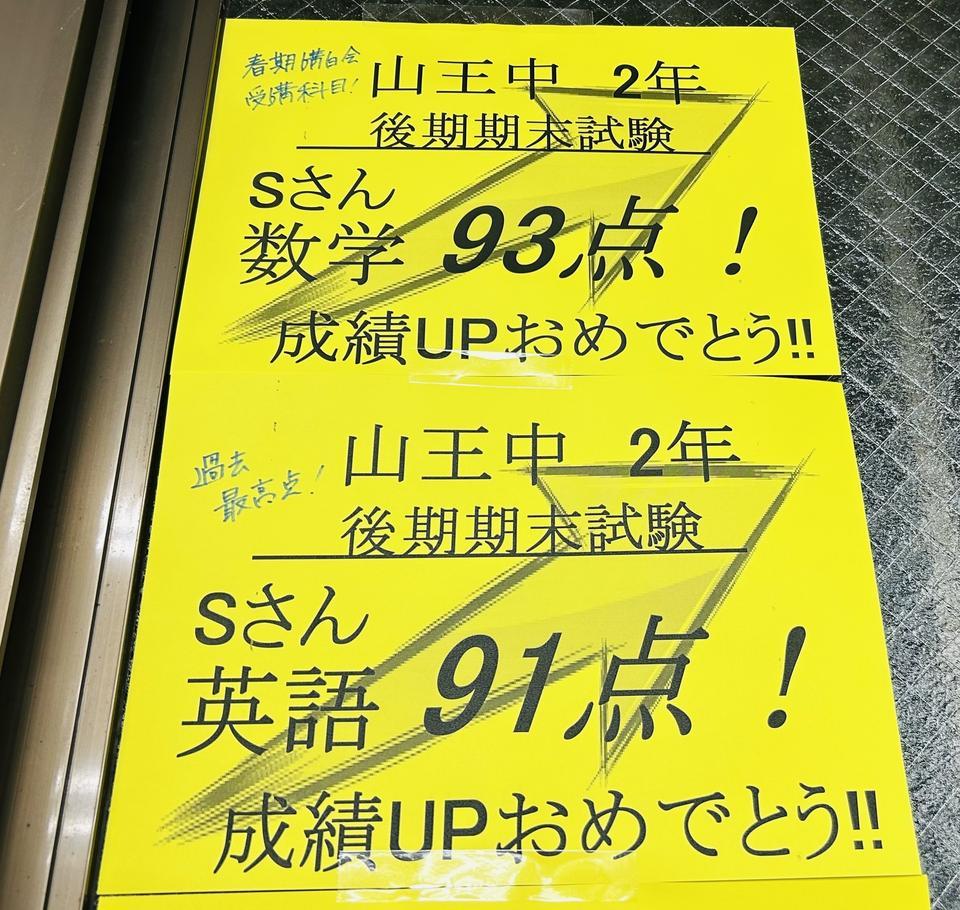 春期講習会
受講科目!
山王中 2年
後期期末試験
Sさん
数学 93点!
成績UPおめでとう!!
過去
最高点!
山王中 2年
後期期末試験
Sさん
英語 91点!
成績UPおめでとう!!